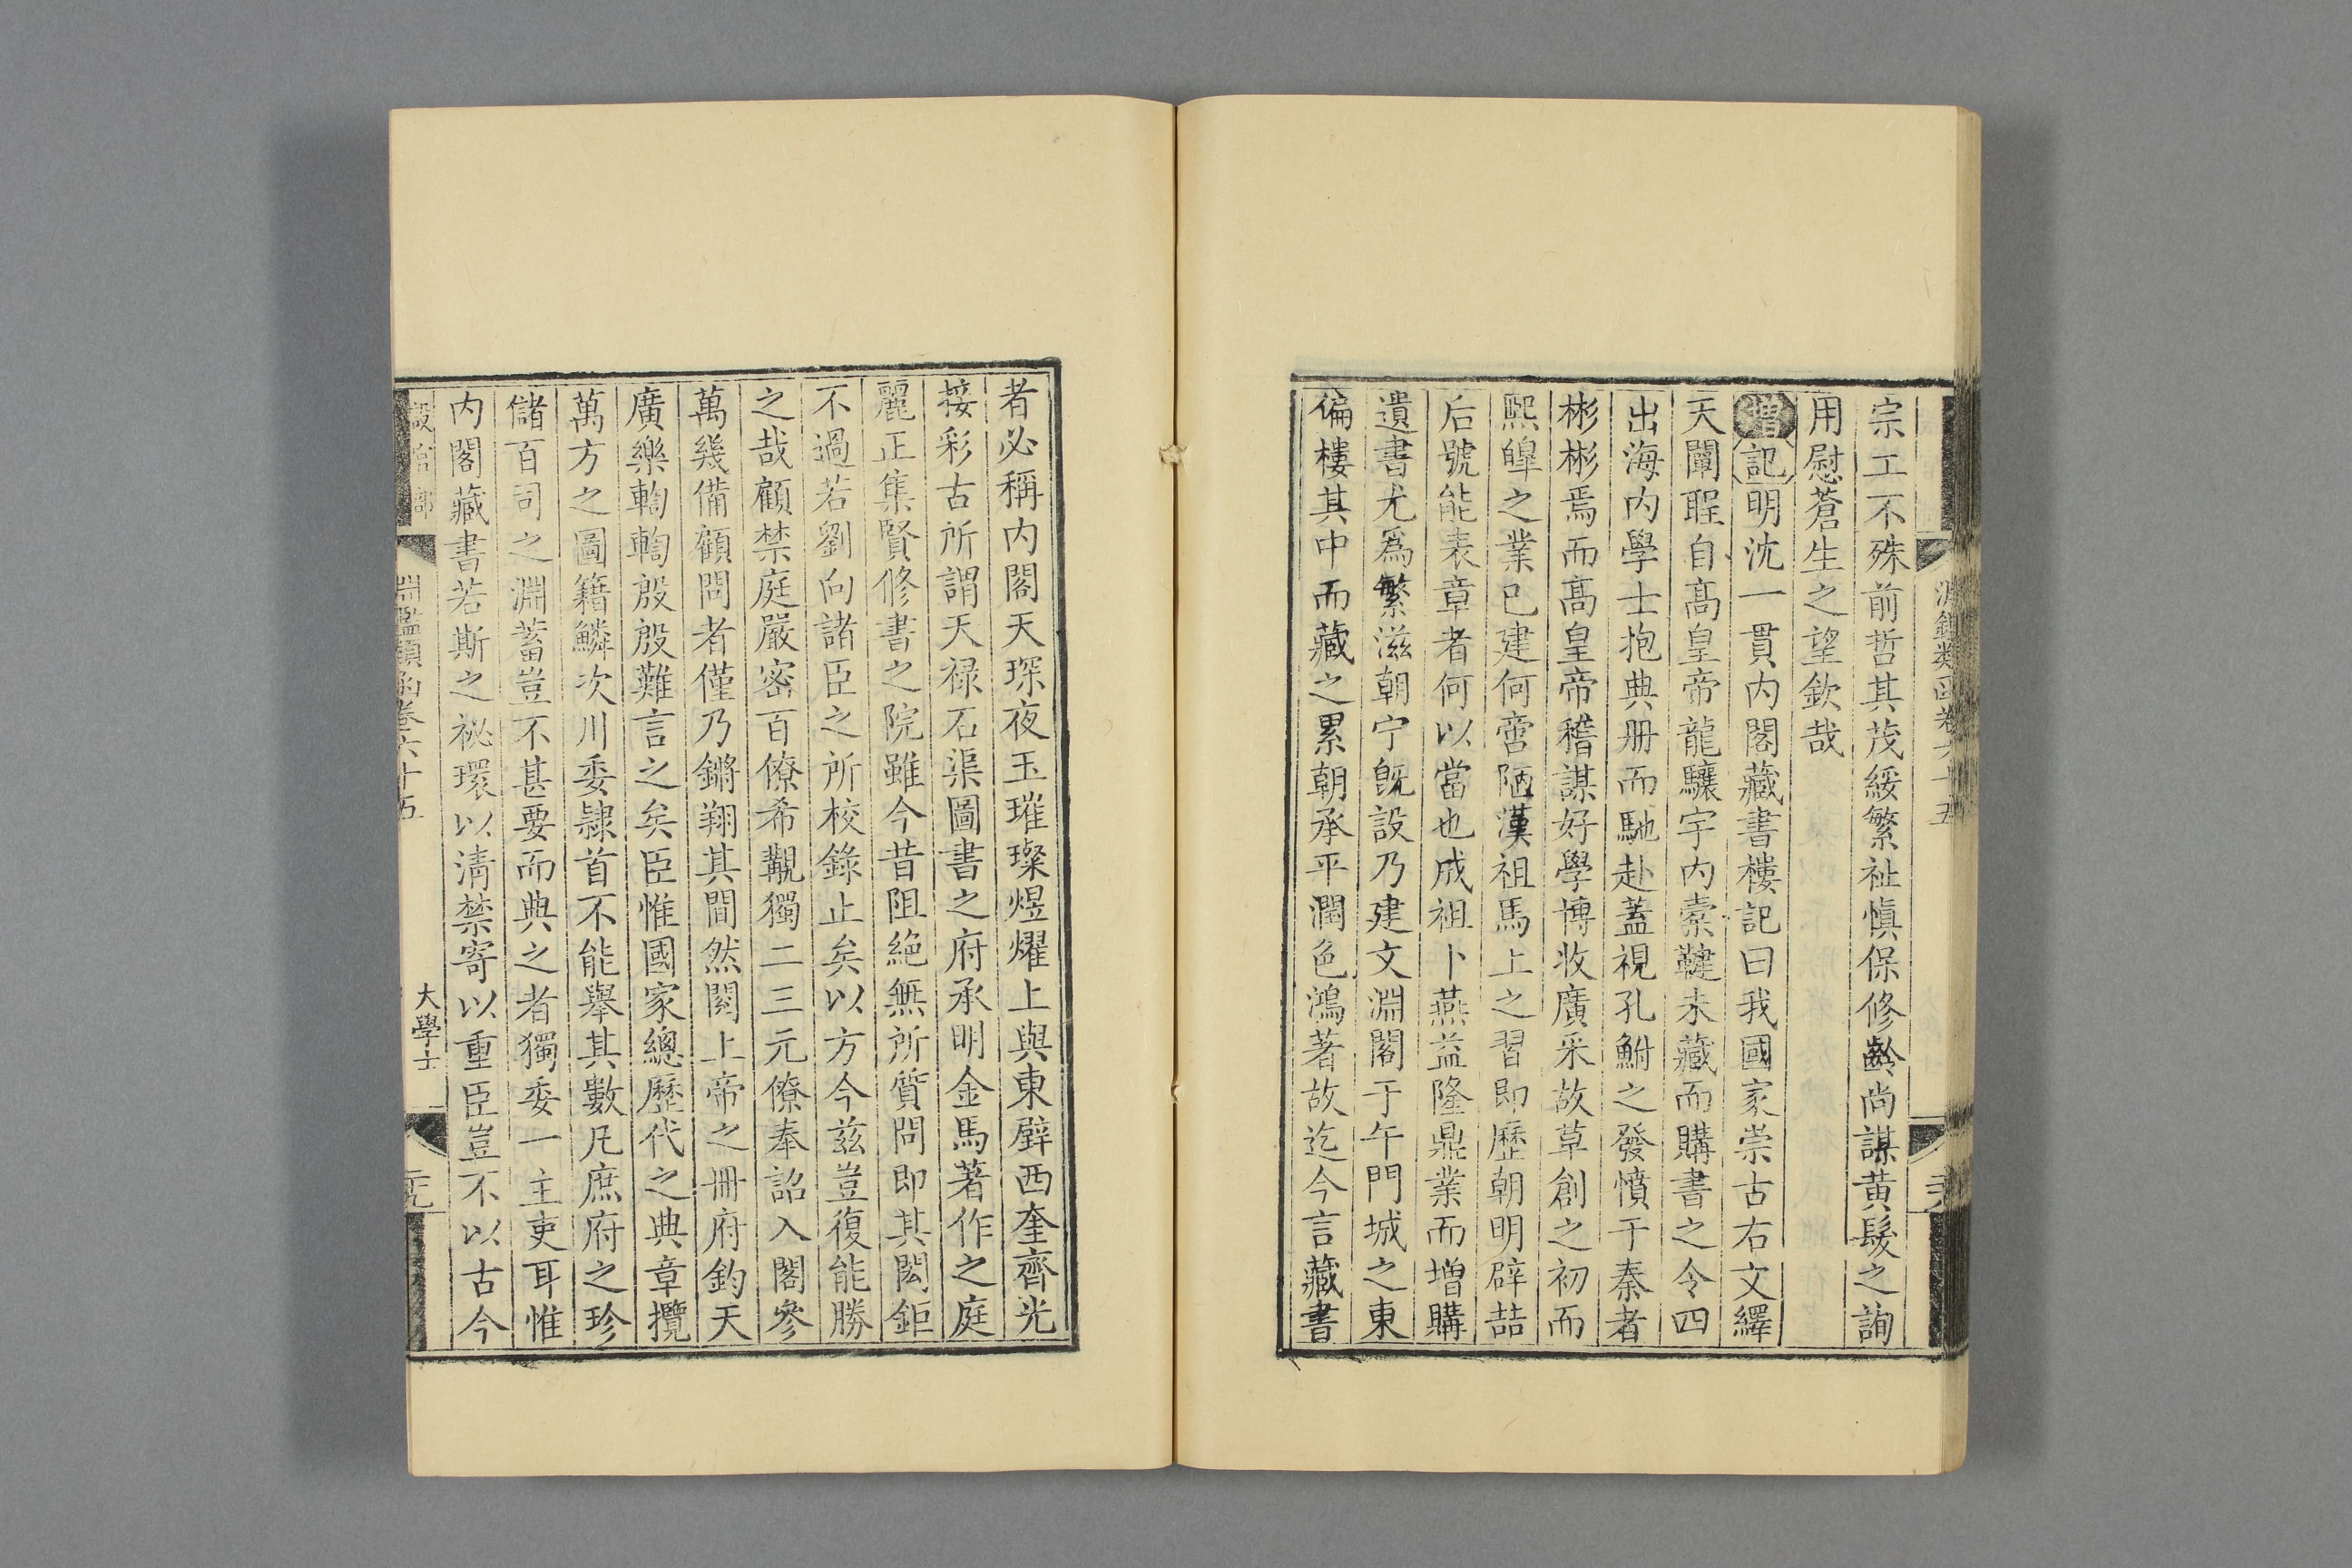 宗工不殊前哲其茂綏繁祉愼保修齡尚謀黄髮之詢
用慰蒼生之望欽哉
增記明沈一貫内閣藏書樓記曰我國家崇古右文繹
天闡聖自髙皇帝龍驤宇内櫜鞬未藏而購書之令四
出海内學士抱典册而馳赴蓋視孔鮒之發憤于秦者
彬彬焉而髙皇帝稽謀好學博收廣采故草創之初而
熙皥之業已建何啻陋漢祖馬上之習即歷朝明辟喆
后號能表章者何以當也成祖卜燕益隆鼎業而增購
遺書尤爲繁滋朝宁旣設乃建文淵閣于午門城之東
偏樓其中而藏之累朝承平潤色鴻著故迄今言藏書
者必稱内閣天琛夜玉璀璨煜燿上與東壁西奎齊光
接彩古所謂天禄石渠圖書之府承明金馬著作之庭
麗正集賢修書之院雖今昔阻絶無所質問即其閎鉅
不過若劉向諸臣之所校錄止矣以方今兹豈復能勝
之哉顧禁庭嚴密百僚希覯獨二三元僚奉詔入閣參
萬幾備顧問者僅乃鏘翔其間然閱上帝之册府釣天
廣樂輷輷殷殷難言之矣臣惟國家總歷代之典章攬
萬方之圖籍鱗次川委隷首不能舉其數凡庶府之珍
儲百司之淵蓄豈不甚要而典之者獨委一主吏耳惟
内閣藏書若斯之祕環以淸禁寄以重臣豈不以古今
設官部 淵鑑類函卷六十五 大學士